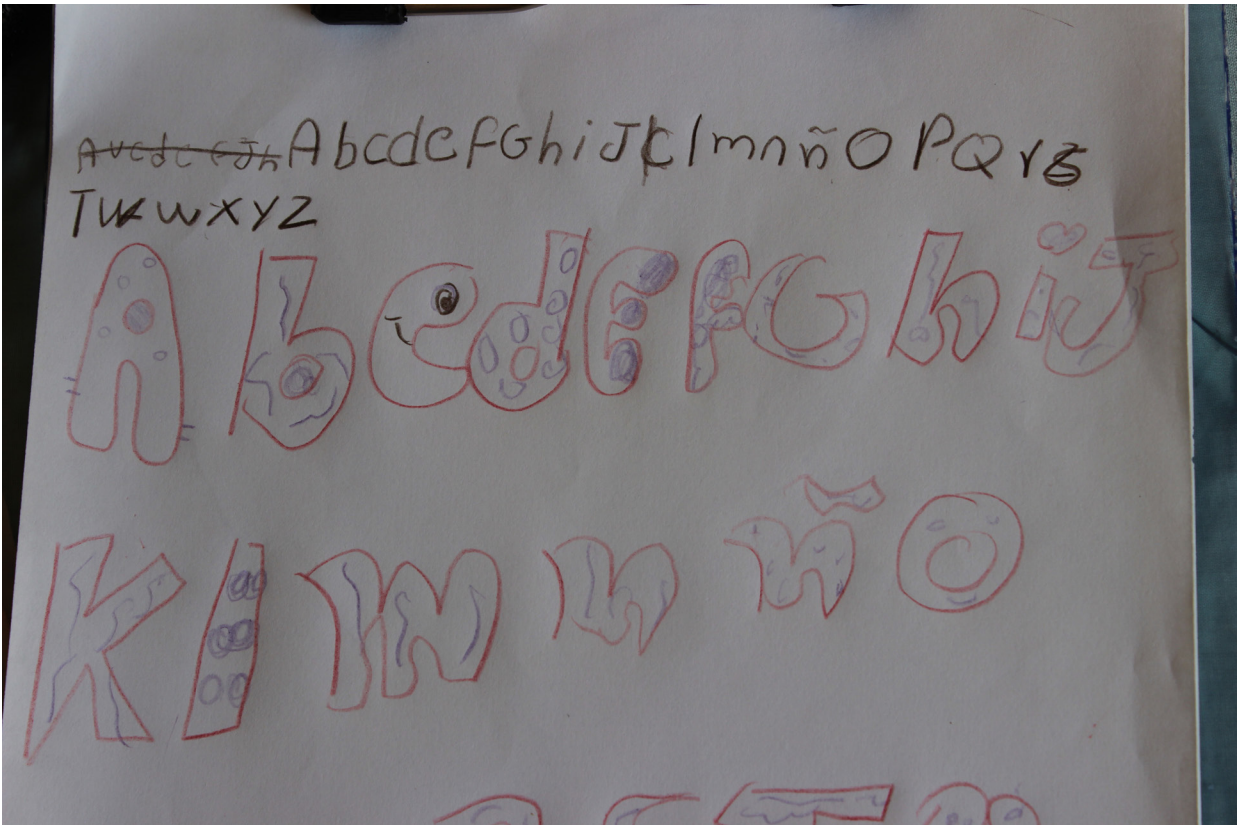 AbcdeFGhiJklmnñO PQrs
Tuwxyz
AbcdEFGhiJ
Klmnño